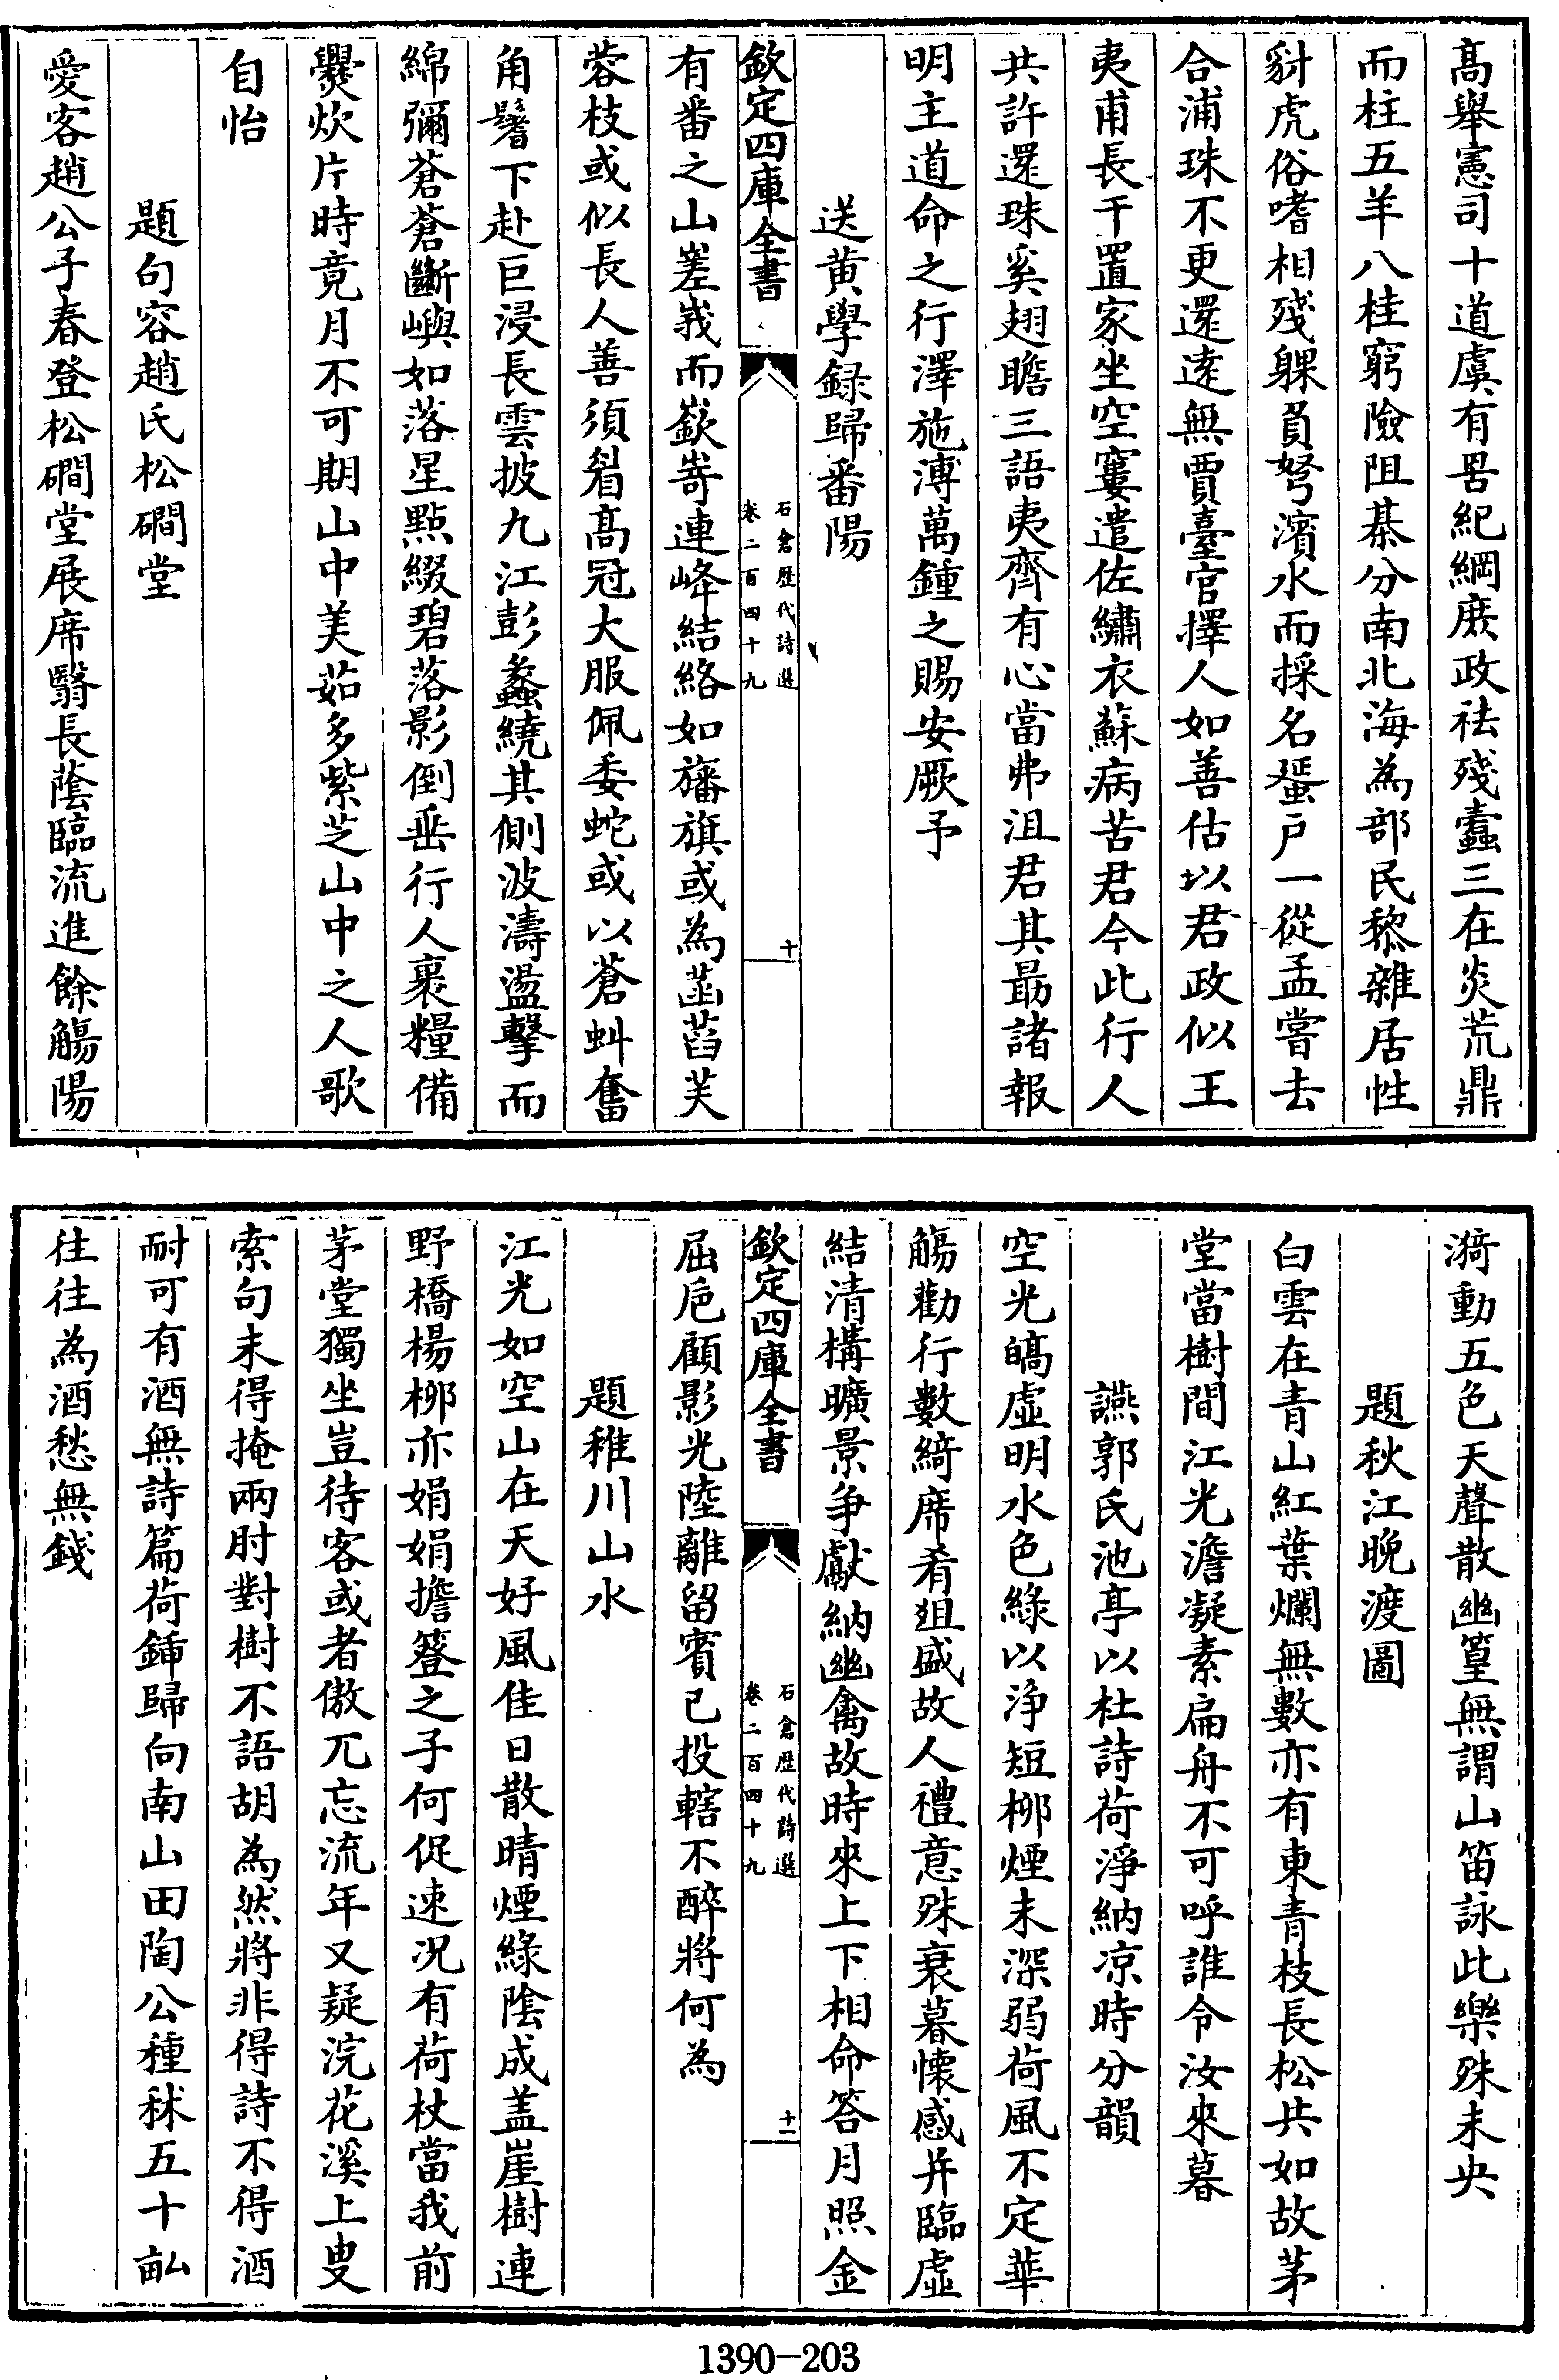 髙舉憲司十道虞有罟紀綱庻政祛殘蠹三在炎荒鼎
而柱五羊八桂窮險阻棊分南北海為部民黎雜居性
豺虎俗嗜相殘躶負弩濱水而採名蜑户一從孟嘗去
合浦珠不更還逺無賈臺官擇人如善估以君政似王
夷甫長干置家坐空寠遣佐繡衣蘇病苦君今此行人
共許還珠奚翅瞻三語夷齊有心當弗沮君其勗諸報
明主道命之行澤施溥萬鍾之賜安厥予
送黄學録歸番陽
欽定四庫全書
石倉歴代詩選
卷二百四十九
十
有番之山嵳峩而嶔崎連峰結絡如旛旗或為菡萏芙
蓉枝或似長人善須眉髙冠大服佩委蛇或以蒼虯奮
角鬐下赴巨浸長雲披九江彭蠡繞其側波濤盪擊而
綿彌蒼蒼斷嶼如落星點綴碧落影倒垂行人裹糧備
爨炊片時竟月不可期山中美茹多紫芝山中之人歌
自怡
題句容趙氏松磵堂
愛客趙公子春登松磵堂展席翳長蔭臨流進餘觴陽
漪動五色天聲散幽篁無謂山笛詠此樂殊未央
題秋江晚渡圖
白雲在青山紅葉爛無數亦有東青枝長松共如故茅
堂當樹間江光澹凝素扁舟不可呼誰令汝來暮
讌郭氏池亭以杜詩荷淨納凉時分韻
空光皜虛明水色綠以浄短柳煙未深弱荷風不定華
觴勸行數綺席肴俎盛故人禮意殊衰暮懷感并臨虛
結清構曠景争獻納幽禽故時來上下相命答月照金
欽定四庫全書
石倉歴代詩選
卷二百四十九
十一
屈巵顧影光陸離留賓已投轄不醉將何為
題稚川山水
江光如空山在天好風佳日散晴煙綠陰成盖崖樹連
野橋楊柳亦娟娟擔簦之子何促速况有荷杖當我前
茅堂獨坐豈待客或者傲兀忘流年又疑浣花溪上叟
索句未得掩兩肘對樹不語胡為然將非得詩不得酒
耐可有酒無詩篇荷鍤歸向南山田陶公種秫五十畝
往往為酒愁無錢
1390-203